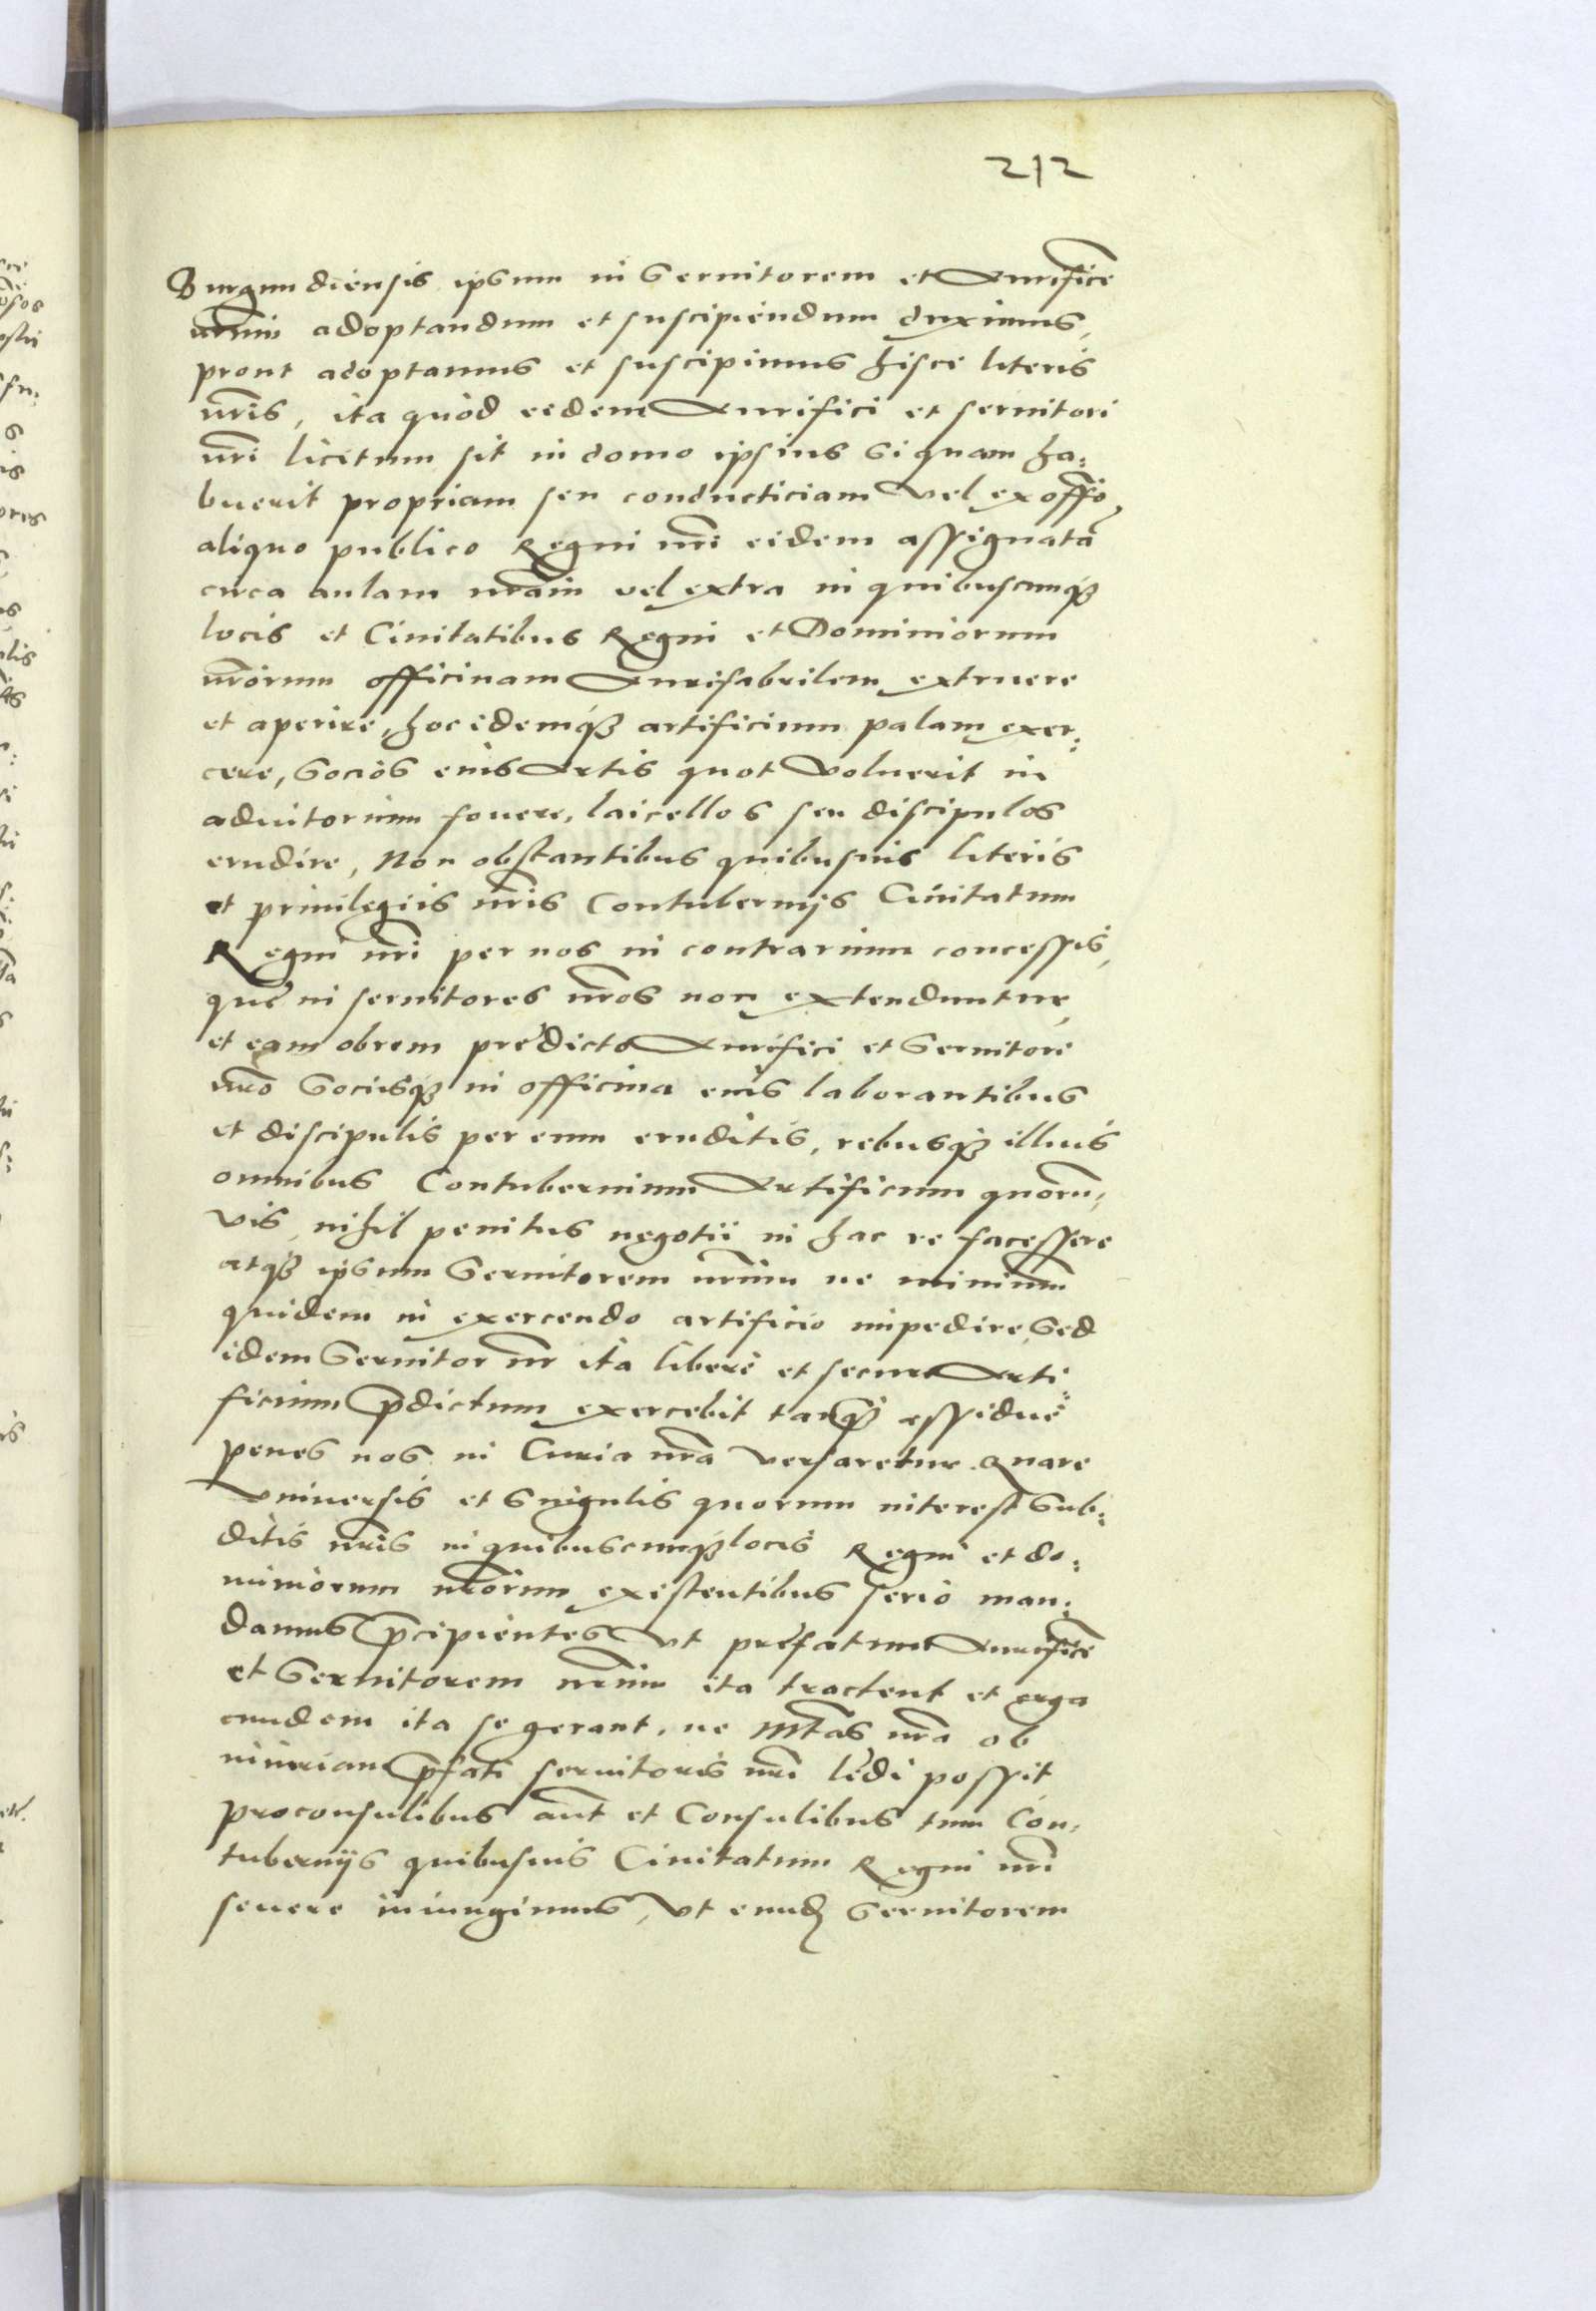 212
Burgundiensis ipsum in Seruitorem et Aurifice
nrum adoptandum et suscipiendum duximus,
prout adoptamus et suscipimus hisce literis
nris, ita quod eidem Aurifici et seruitori
nri licitum sit in domo ipsius si quam ha:
buerit propriam seu conducticiam vel ex offio
aliquo publico Regni nri eidem assignata
circa aulam nram vel extra in quibuscunq3
locis et Ciuitatibus Regni et Dominiorum
nrorum officinam Aurifabrilem extruere
et aperire, hoc idemq3 artificium palam exer:
cere, Socios eius Artis quot voluerit in
adiutorium fouere, laicellos seu discipulos
erudire, Non obstantibus quibusuis literis
et priuilegiis nris Contubernijs Ciuitatum
Regni nri per nos in contrarium concessis,
que in seruitores nros non extenduntur,
et eam obrem predicto Aurifici et Seruitori
nro Sociisq3 in officina eius laborantibus
et discipulis per eum eruditis, rebusq3 illius
omnibus Contubernium Artificum quorum,
vis, nihil penitus negotii in hac re facessere
atq3 ipsum Seruitorem nrum ne minimum
quidem in exercendo artificio impedire, Sed
idem Seruitor nr ita libere et secure Arti:
ficium pdictum exercebit tanq3 assidue
penes nos in Curia nra versaretur. Quare
vniuersis et Singulis quorum interest Sub:
ditis nris in quibuscunq3 locis Regni et do:
miniorum nrorum existentibus serio man:
damus pcipientes vt prefatum Aurifice
et Seruitorem nrum ita tractent et erga
eundem ita se gerant, ne Mtas nra ob
iniuriam pfati seruitoris nri ledi possit
proconsulibus aut et Consulibus tum Con:
tubernijs quibusuis Ciuitatum Regni nri
seuere iniungimus, vt eund Seruitorem